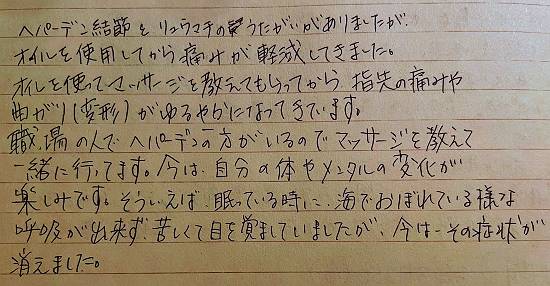 ヘバーデン結節とリュウマチの疑うたがいがありましたが
オイルを使用してから痛みが軽減してきました。
オイルを使ってマッサージを教えてもらってから 指先の痛みや
曲がり(変形)がゆるやかになってきています。
職場の人でヘバーデンの方がいるのでマッサージを教えて
一緒に行ってます。今は、自分の体やメンタルの変化が
楽しみです。そういえば、眠っている時に、海でおぼれている様な
呼吸が出来ず、苦しくて目を覚ましていましたが、今は、その症状が
消えました。